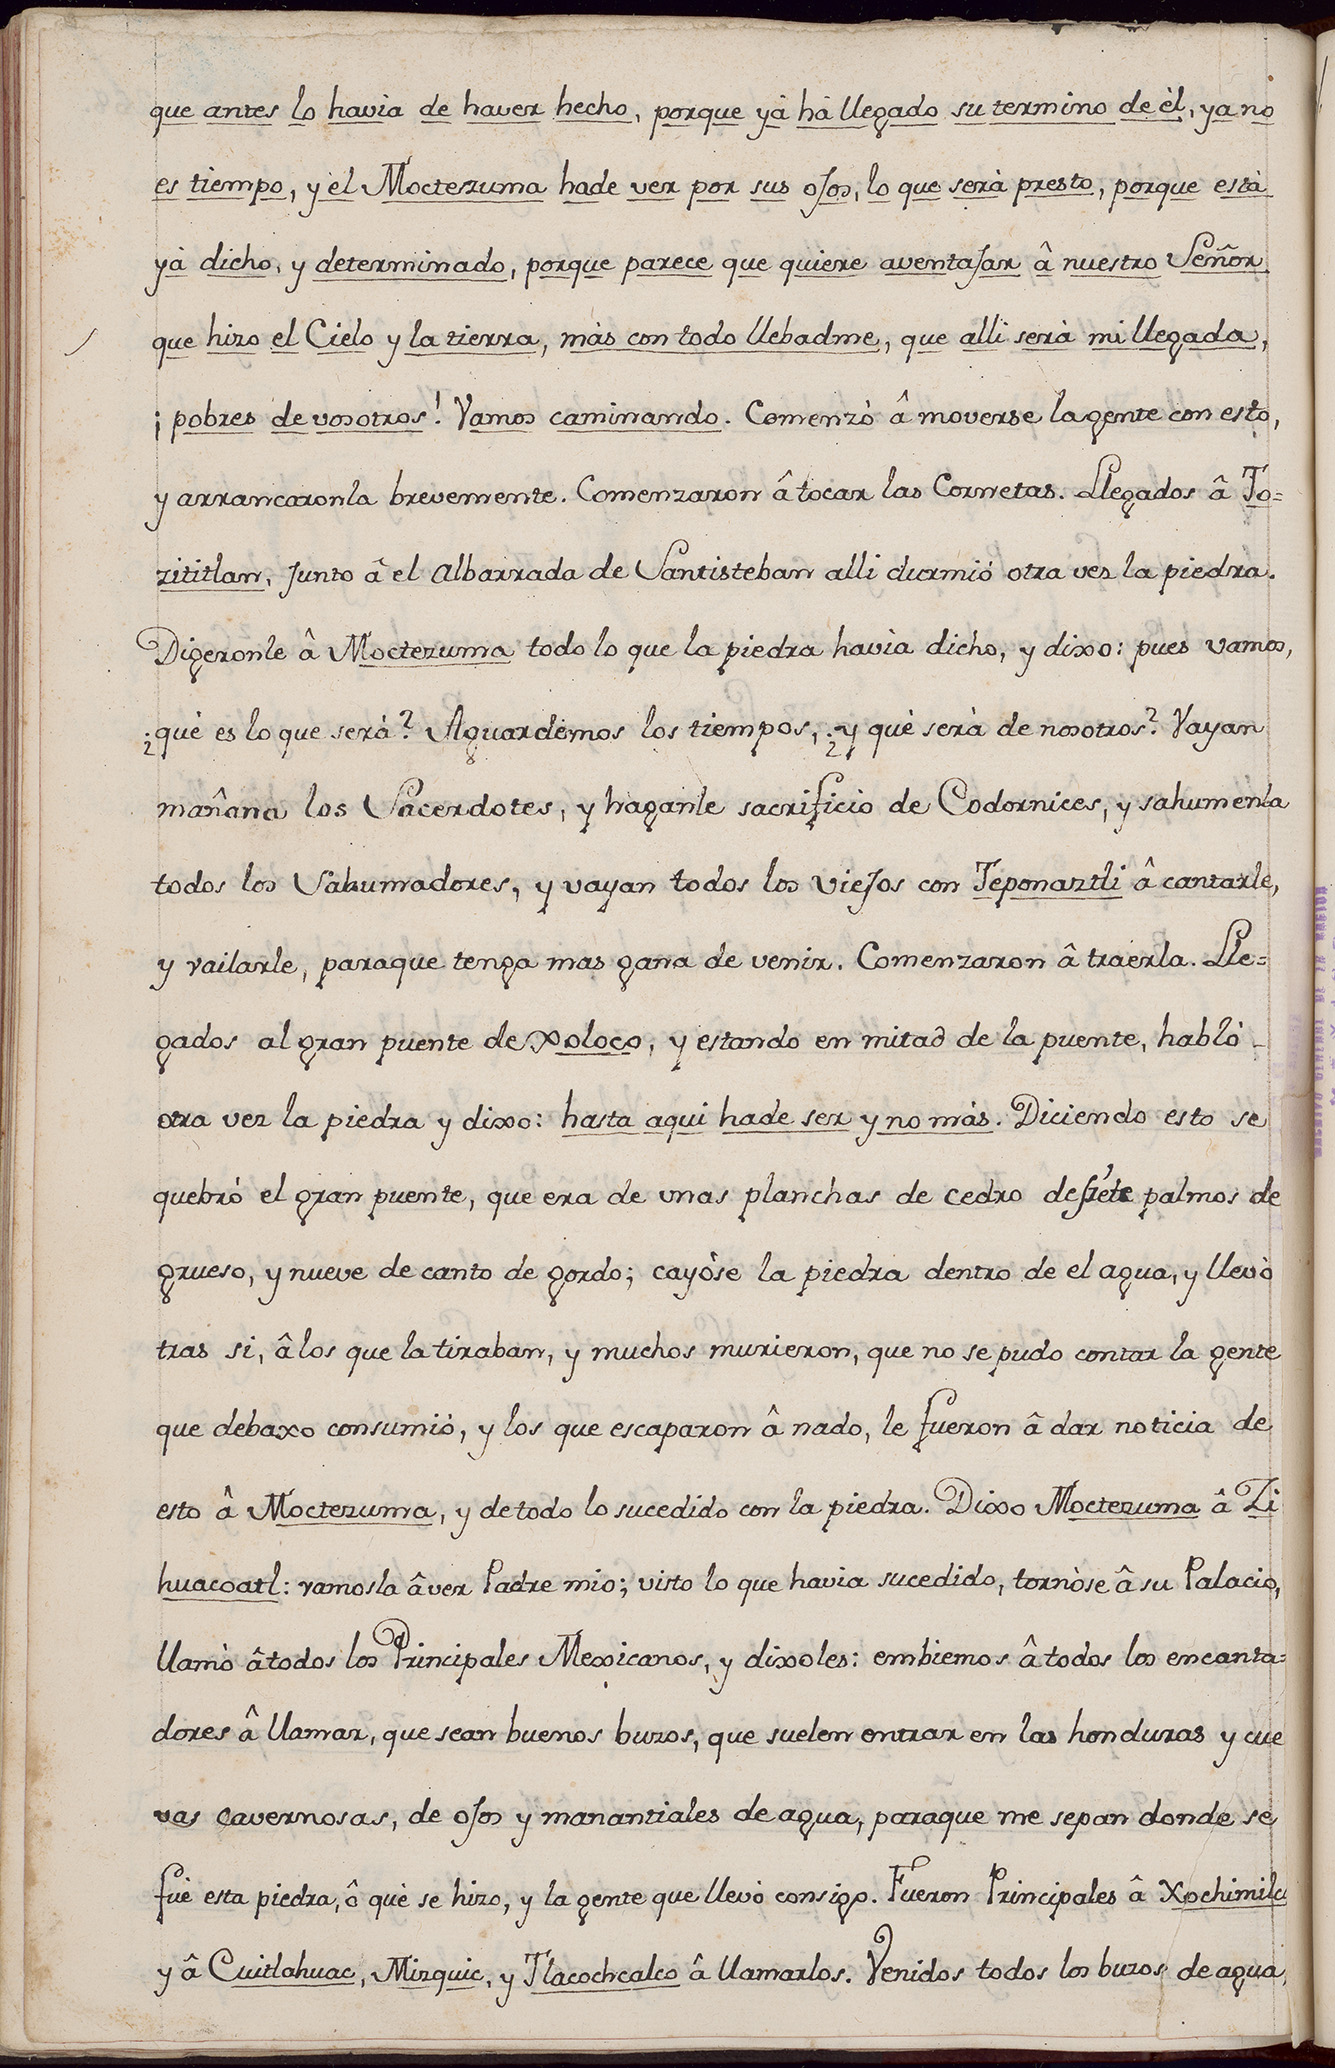 que antes lo havia de haver hecho, porque yà hà llegado su termino de èl, ya no
es tiempo, y èl Moctezuma hade ver por sus ojos, lo que serà presto, porque està
yà dicho, y determinado, porque parece que quiere aventajar â nuestro Señor
que hizo el Cielo y la tierra, màs con todo llebadme, que alli serà mi llegada,
¡pobres de vosotros! Vamos caminando. Comenzò â moverse la gente con esto,
y arrancaronla brevemente. Comenzaron â tocar las Cornetas. Llegados â To=
zititlan, junto â el Albarrada de Santisteban alli durmió otra ves la piedra.
Digeronle â Moctezuma todo lo que la piedra havia dicho, y dixo: pues vamos,
¿què es lo que serà? Aguardemos los tiempos, ¿y què serà de nosotros? Vayan
mañana los Sacerdotes, y haganle sacrificio de Codornices, y sahumenla
todos los Sahumadores, y vayan todos los viejos con Teponaztli â cantarle,
y vailarle, paraque tenga mas gana de venir. Comenzaron â traerla. Lle=
gados al gran puente de Xoloco, y estando en mitad de la puente, hablò
otra vez la piedra y dixo: hasta aqui hade ser y no màs. Diciendo esto se
quebrò el gran puente, que era de unas planchas de cedro de siete palmos de
grueso, y nueve de canto de gordo; cayòse la piedra dentro de el agua, y llevò
tras si, â los que la tiraban, y muchos murieron, que no se pudo contar la gente
que debaxo consumiò, y los que escaparon â nado, le fueron â dar noticia de
esto â Moctezuma, y de todo lo sucedido con la piedra. Dixo Moctezuma â Zi
huacoatl: vamosla â ver Padre mio; visto lo que havia sucedido, tornòse â su Palacio,
llamò â todos los Principales Mexicanos, y dixoles: embiemos â todos los encanta=
dores â llamar, que sean buenos buzos, que suelen entrar en las honduras y cue
vas cavernosas, de ojos y manantiales de agua, paraque me sepan donde se
fuè esta piedra, ô què se hizo, y la gente que llevò consigo. Fueron Principales â Xochimilco
y â Cuitlahuac, Mizquic, y Tlacochcalco â llamarlos. Venidos todos los buzos de agua,